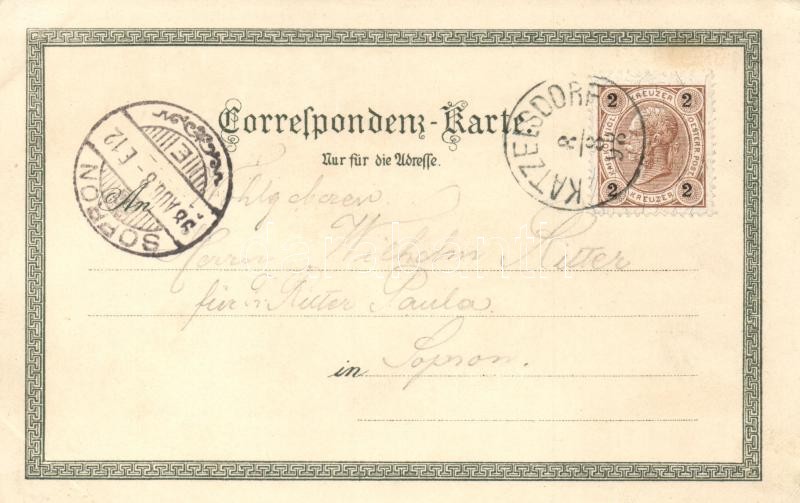 Correspondenz-Karte.
Nur für die Adresse.
KATZELSDORF
8 8 98
2 KREUZER 2
OESTERR. POST
2 KREUZER 2
SOPRON
98 AUG. 8 - E.12
An
Wohlgeboren
Herrn Wilhelm Ritter
für Frl. Ritter Paula.
in Sopron.